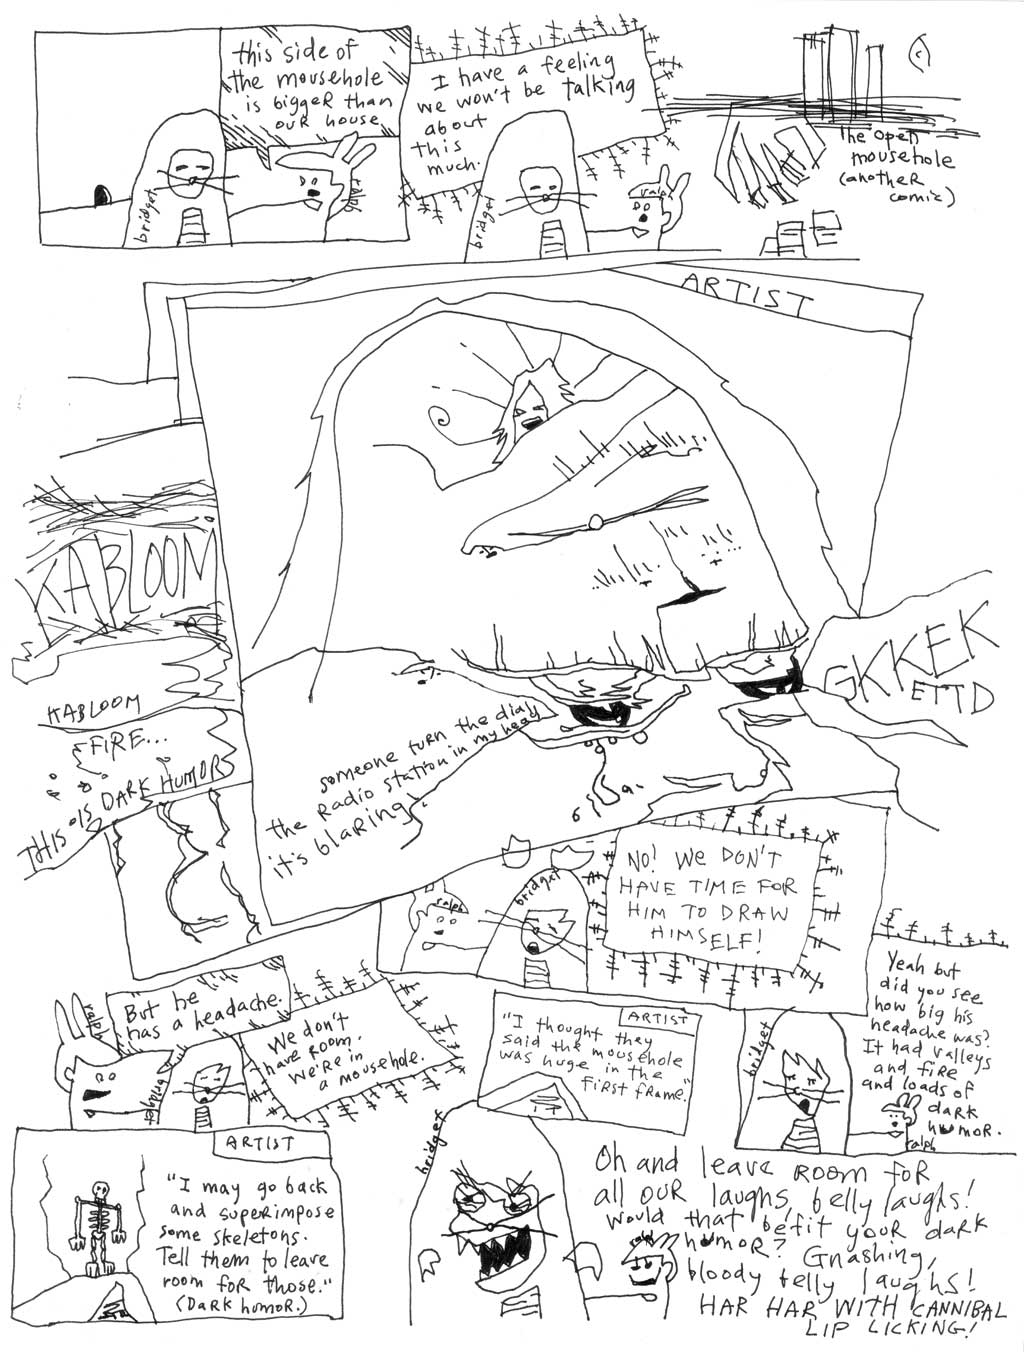 this side of
the mousehole
is bigger than
our house
bridget
ralph
I have a feeling
we won't be talking
about
this
much.
bridget
ralph
The open
mousehole
(another
comic)
ARTIST
KABLOOM
KABLOOM
FIRE...
THIS IS DARK HUMOR
GKKEK
ETTD
someone turn the dial
the radio station in my head
it's blaring!
ralph
bridget
NO! WE DON'T
HAVE TIME FOR
HIM TO DRAW
HIMSELF!
ralph
"But he
has a headache."
bridget
We don't
have room.
We're in
a mousehole.
ARTIST
"I thought they
said the mousehole
was huge in the
first frame."
bridget
Yeah but
did you see
how big his
headache was?
It had valleys
and fire
and loads of
dark
humor.
ralph
ARTIST
"I may go back
and superimpose
some skeletons.
Tell them to leave
room for those."
(Dark humor.)
bridget
ralph
Oh and leave room for
all our laughs, belly laughs!
Would that befit your dark
humor? Gnashing,
bloody belly laughs!
HAR HAR WITH CANNIBAL
LIP LICKING!